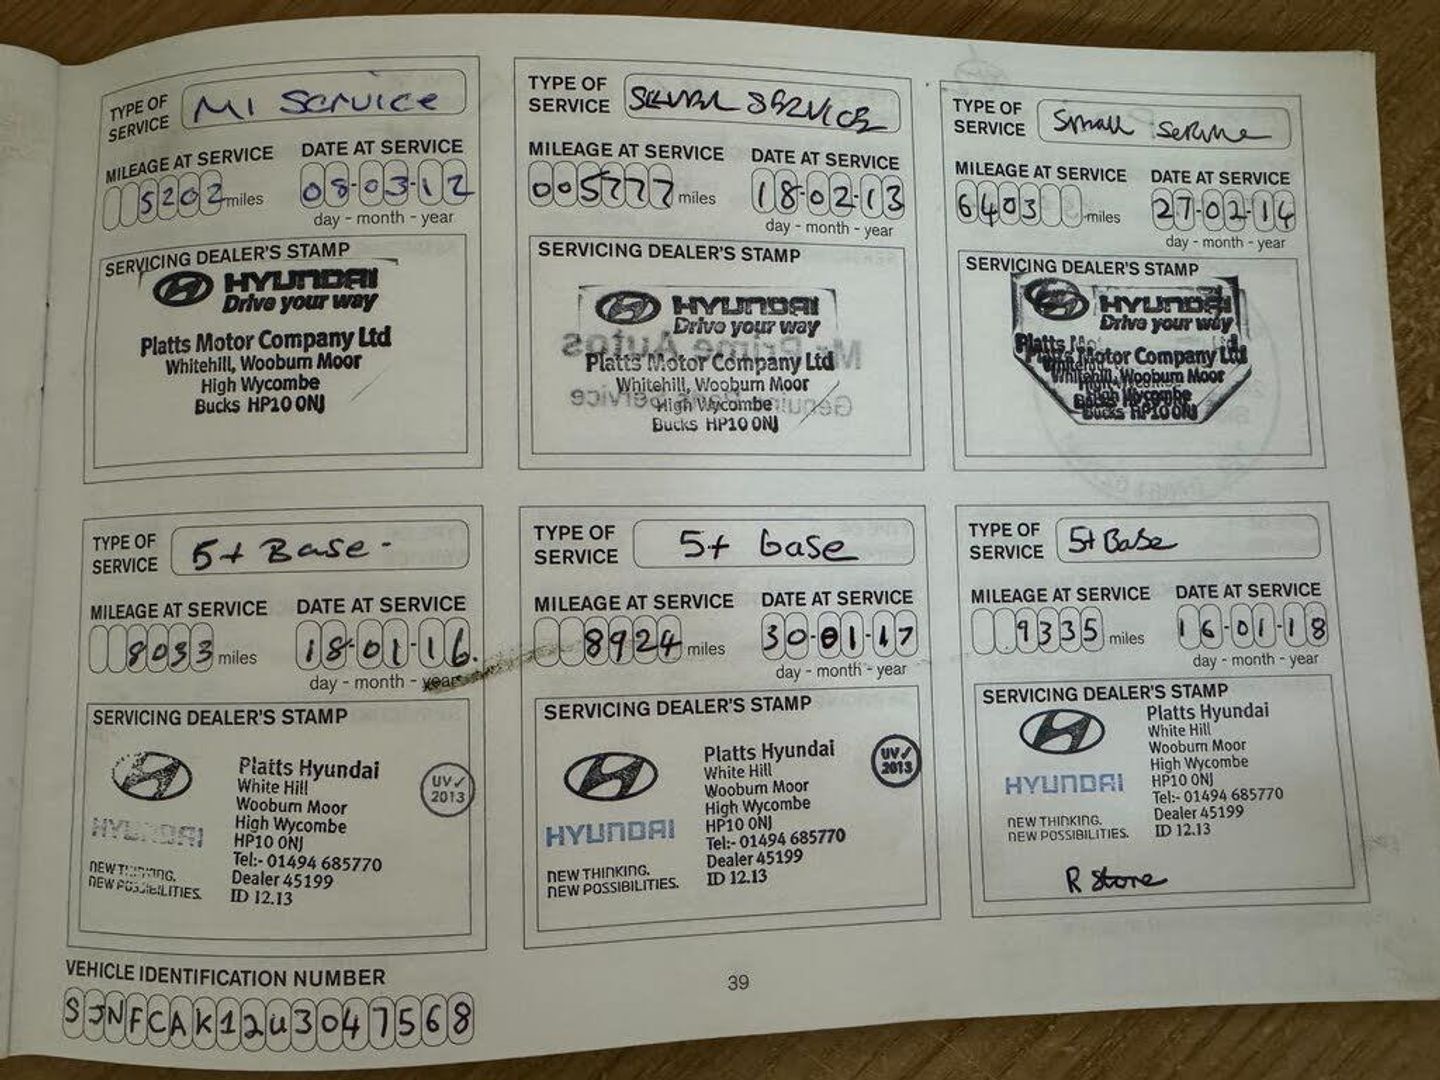 TYPE OF SERVICE M1 SERVICE
MILEAGE AT SERVICE DATE AT SERVICE
5202 miles 08-03-12
day - month - year
SERVICING DEALER'S STAMP
HYUNDAI
Drive your way
Platts Motor Company Ltd
Whitehill, Wooburn Moor
High Wycombe
Bucks HP10 0NJ
TYPE OF SERVICE SERVICE
MILEAGE AT SERVICE DATE AT SERVICE
005777 miles 18-02-13
day - month - year
SERVICING DEALER'S STAMP
HYUNDAI
Drive your way
Platts Motor Company Ltd
Whitehill, Wooburn Moor
High Wycombe
Bucks HP10 0NJ
Mr Prime Autos
TYPE OF SERVICE Small Service
MILEAGE AT SERVICE DATE AT SERVICE
6403 miles 27-02-14
day - month - year
SERVICING DEALER'S STAMP
HYUNDAI
Drive your way
Platts Motor Company Ltd
Whitehill, Wooburn Moor
High Wycombe
Bucks HP10 0NJ
TYPE OF SERVICE 5+ Base-
MILEAGE AT SERVICE DATE AT SERVICE
8033 miles 18-01-16.
day - month - year
SERVICING DEALER'S STAMP
HYUNDAI
NEW THINKING.
NEW POSSIBILITIES.
Platts Hyundai
White Hill
Wooburn Moor
High Wycombe
HP10 0NJ
Tel:- 01494 685770
Dealer 45199
ID 12.13
UV✓
2013
TYPE OF SERVICE 5+ base
MILEAGE AT SERVICE DATE AT SERVICE
8924 miles 30-01-17
day - month - year
SERVICING DEALER'S STAMP
HYUNDAI
NEW THINKING.
NEW POSSIBILITIES.
Platts Hyundai
White Hill
Wooburn Moor
High Wycombe
HP10 0NJ
Tel:- 01494 685770
Dealer 45199
ID 12.13
UV✓
2013
TYPE OF SERVICE 5+ Base
MILEAGE AT SERVICE DATE AT SERVICE
9335 miles 16-01-18
day - month - year
SERVICING DEALER'S STAMP
HYUNDAI
NEW THINKING.
NEW POSSIBILITIES.
Platts Hyundai
White Hill
Wooburn Moor
High Wycombe
HP10 0NJ
Tel:- 01494 685770
Dealer 45199
ID 12.13
R Stone
VEHICLE IDENTIFICATION NUMBER
SJNFCAK12U3047568
39